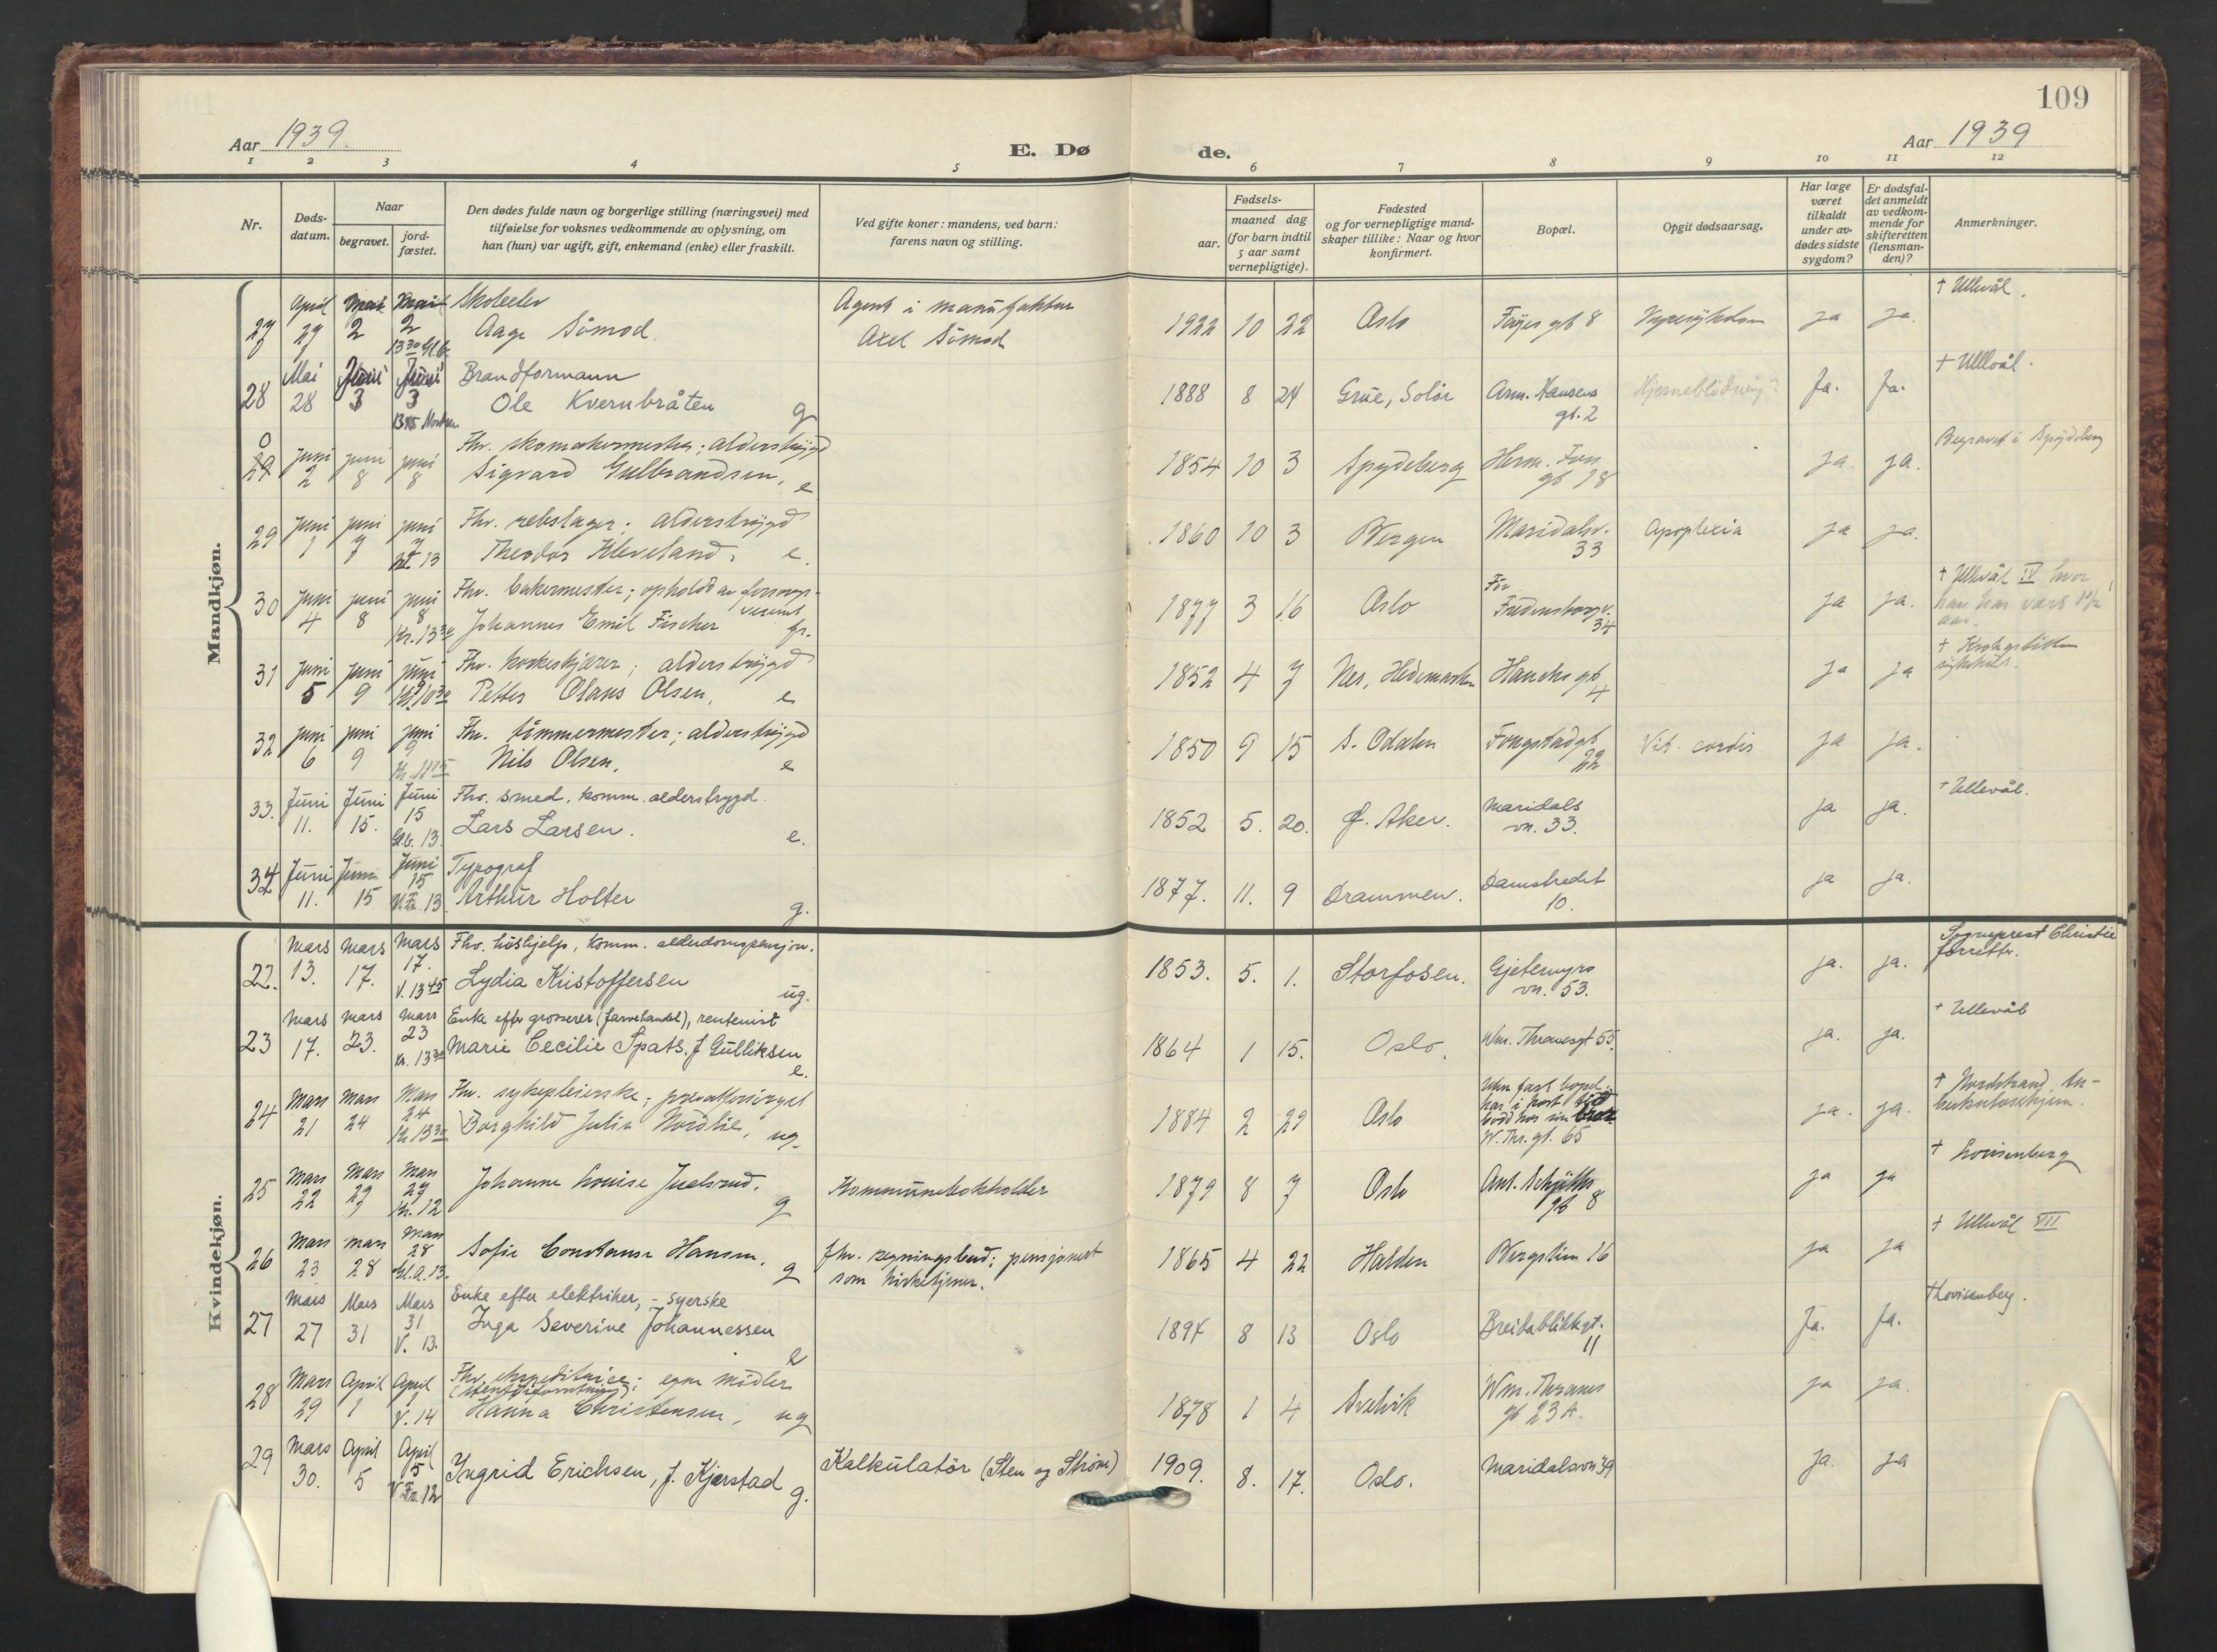 109
Aar 1939. E. Dø de. Aar 1939
1 2 3 4 5 6 7 8 9 10 11 12
Nr.
Døds-
datum.
Naar
begravet.
jord-
fæstet.
Den dødes fulde navn og borgerlige stilling (næringsvei) med
tilføielse for voksnes vedkommende av oplysning, om
han (hun) var ugift, gift, enkemand (enke) eller fraskilt.
Ved gifte koner: mandens, ved barn:
farens navn og stilling.
Fødsels-
aar.
maaned dag
(for barn indtil
5 aar samt
vernepligtige).
Fødested
og for vernepligtige mand-
skaper tillike: Naar og hvor
konfirmert.
Bopæl.
Opgit dødsaarsag.
Har læge
været
tilkaldt
under av-
dødes sidste
sygdom?
Er dødsfal-
det anmeldt
av vedkom-
mende for
skifteretten
(lensman-
den)?
Anmerkninger.
Mandkjøn.
April Mai Mai Skoleelev Agent i manufaktur † Ullevål.
27 27 2 2 Aage Sömod. Axel Sömod 1922 10 22 Oslo Fayes gt 8 Nyresykdom ja ja.
13 30 Gl. k.
Mai Juni Juni Brandformann † Ullevål.
28 28 3 3 Ole Kvernbråten g 1888 8 24 Grue, Solør Arn. Hansens Hjerneblödning? Ja. Ja.
13 45 gt. 2
Juni juni juni Fhv. skomakermester; alderstrygd Begravet i Spydeberg
29 2 8 8 Sigvard Gulbrandsen, e 1854 10 3 Spydeberg Herm. Foss ja. ja.
gt 18
Juni juni juni Fhv. rebslager; alderstrygd
29 1 7 7 Theodor Kleveland, e. 1860 10 3 Bergen Maridalsv. Apoplexia ja ja.
13 33
Juni juni juni Fhv. bakermester; ophold av forsorgs- † Ullevål IV hvor
30 4 8 8 vesenet 1877 3 16 Oslo Før ja ja. han har vært 1½
Kr. 13 30 Johannes Emil Fischer fr. Fredensborgv. aar.
34
Juni juni juni Fhv. korkeskjærer; alderstrygd † Krohgstötten
31 5 9 9 Petter Olaus Olsen, e 1852 4 7 Nes, Hedemarken Hauchs gt ja ja sykehus.
10 30 4
juni juni juni Fhv. tömmermester; alderstrygd
32 6 9 9 Nils Olsen, e 1850 9 15 S. Odalen Fougstadgt Vit. cordis ja ja.
22
33. Juni Juni Juni Fhv. smed. komm. alderstrygd. † Ullevål.
11. 15. 15 Lars Larsen. e. 1852 5. 20. Ø. Aker. Maridals ja ja.
Gl. k. 13. vn. 33.
34 Juni Juni Juni Typograf
11. 15 15 Arthur Holter g. 1877. 11. 9 Drammen. Damstredet ja ja.
13. 10.
Kvindekjøn.
Mars Mars Mars Fhv. hushjelp, komm. alderdomspensjon. Sogneprest Christie
22. 13. 17. 17. Lydia Kristoffersen ug. 1853. 5. 1. Storfosen. Gjetemyrs ja. ja. forrettr.
V. 13 45 vn. 53.
Mars Mars Mars Enke efter grosserer (farvehandel), rentenist † Ullevål
23 17. 23. 23 Marie Cecilie Spats. f Gulliksen 1864 1 15. Oslo. Wm. Thranesgt 55. ja. ja.
Kr. 13 30 e.
Mars Mars Mars Fhv. sykepleierske; † Nordstrand tu-
24 21 24 24 Borghild Julie Nordlie, ug. 1884 2 29 Oslo Uten fast bopel. ja. ja. berkulosehjem.
Kr 13 30 har i kort tid
bodd hos sin
W. Thr. gt. 65
Mars Mars Mars † Lovisenberg
25 22 27 27 Johanne Louise Juelsrud. g Kommunebokholder 1879 8 7 Oslo Ant. Schjöths ja ja
Kr. 12 gt 8
Mars Mars Mars † Ullevål VII
26 23 28 28 Sofie Constanse Hansen. g fhv. regningsbud; pensjonert 1865 4 22 Halden Bergstien 16 ja ja
13. som kirketjener.
Mars Mars Mars Enke efter elektriker, - syerske † Lovisenberg.
27 27 31 31 Inga Severine Johannessen 1894 8 13 Oslo Breidablikkgt. Ja. Ja.
V. 13. e 11
Mars April April Fhv. ekspeditrice; egne midler
28 29 1 1 Hanna Christensen, ug 1878 1 4 Svelvik Wm. Thranes ja ja.
V. 14 gt 23 A.
Mars April April
29 30. 5 5 Ingrid Erichsen, f. Kjærstad g. Kalkulatör (Sten og Ström) 1909. 8. 17. Oslo. Maridalsvn 39 ja. ja
V. Fr. 12